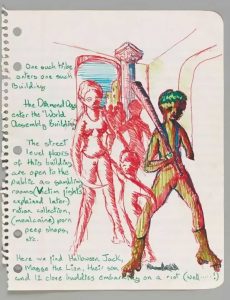 One such tribe
enters one such
Building
the Diamond Dogs
enter the World
Assembly Building
The street
level floors
of this building
are open to the
public as gambling
rooms (Victim fights
explained later)
ration collection,
(mealcaine) porn
peep shops,
etc.
Here we find Halloween Jack,
Magge the Lion, their son
and 12 close buddies embarking on a riot (well.....!)